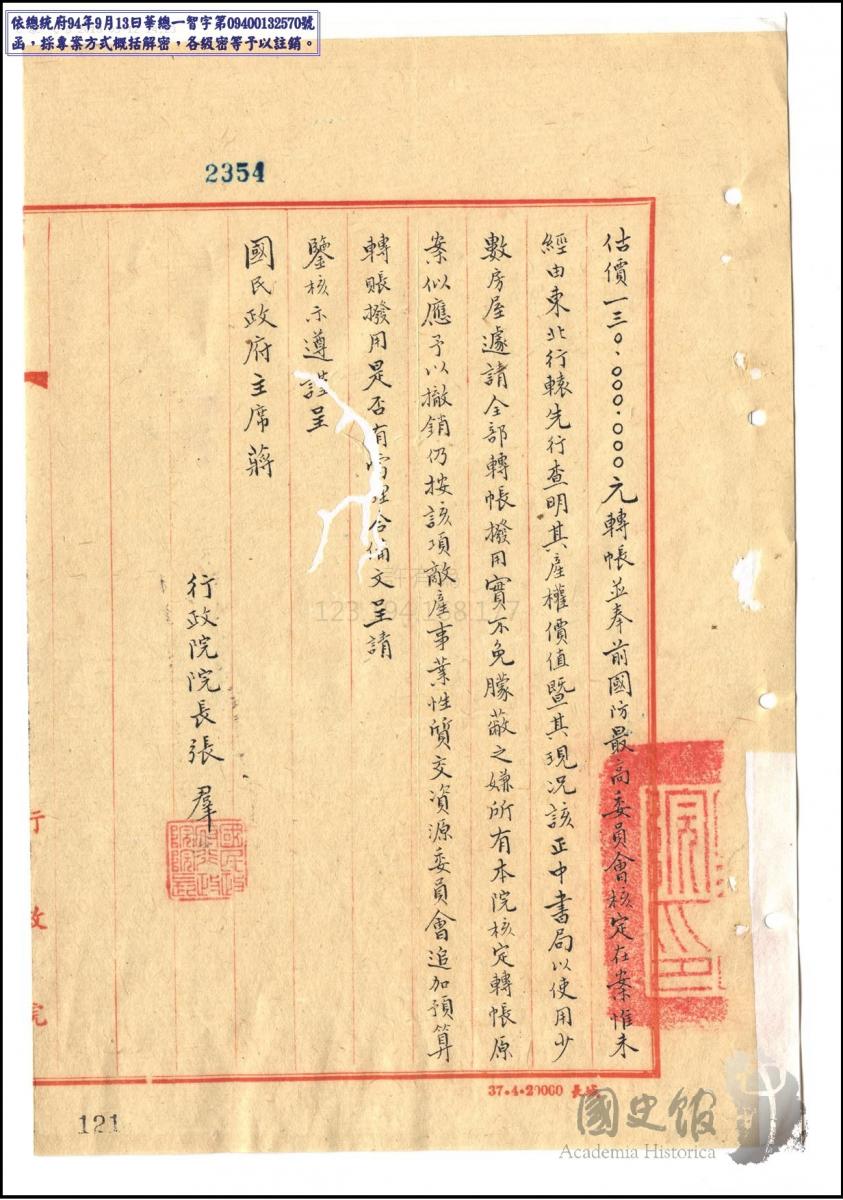 依總統府94年9月13日華總一智字第09400132570號
函,採專案方式概括解密,各級密等予以註銷。
2354
估價一三〇.〇〇〇.〇〇〇元轉帳並奉前國防最高委員會核定在案惟未
經由東北行轅先行查明其產權價值暨其現況該正中書局以使用少
數房屋遽請全部轉帳撥用實不免矇蔽之嫌所有本院核定轉帳原
案似應予以撤銷仍按該項敵產事業性質交資源委員會追加預算
轉賬撥用是否有當理合備文呈請
鑒核示遵謹呈
國民政府主席蔣
行政院院長張羣
行政院
37.4.20000
121
國史館
Academia Historica